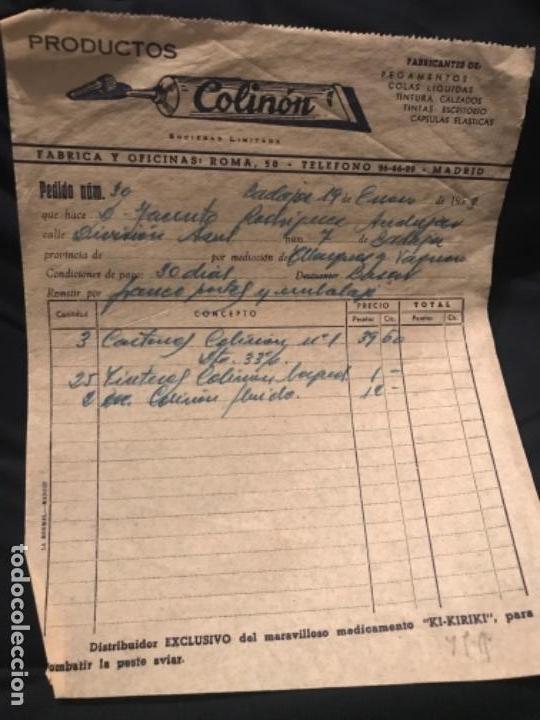 PRODUCTOS
Colinón
SOCIEDAD LIMITADA
FABRICANTES DE:
PEGAMENTOS
COLAS LIQUIDAS
TINTURA CALZADOS
TINTAS ESCRITORIO
CAPSULAS ELASTICAS
FABRICA Y OFICINAS: ROMA, 50 - TELEFONO 26-46-89 - MADRID
Pedido núm. 30 Badajoz 19 de Enero de 19
que hace D. Jacinto Rodríguez Andujar
calle División Azul núm. 7 de Badajoz
provincia de por mediación de Marquez y
Condiciones de pago: 30 días Descuento
Remitir por franco portes y embalaje
Cantidad CONCEPTO PRECIO TOTAL
Pesetas Cts. Pesetas Cts.
3 Cartones Colinón nº 1 39 60
Dto. 33%
25 Tinteros Colinón 1 -
2 Colinón fluido. 12 -
LA NORMAL.-MADRID
Distribuidor EXCLUSIVO del maravilloso medicamento "KI-KIRIKI", para
combatir la peste aviar.
todocoleccion